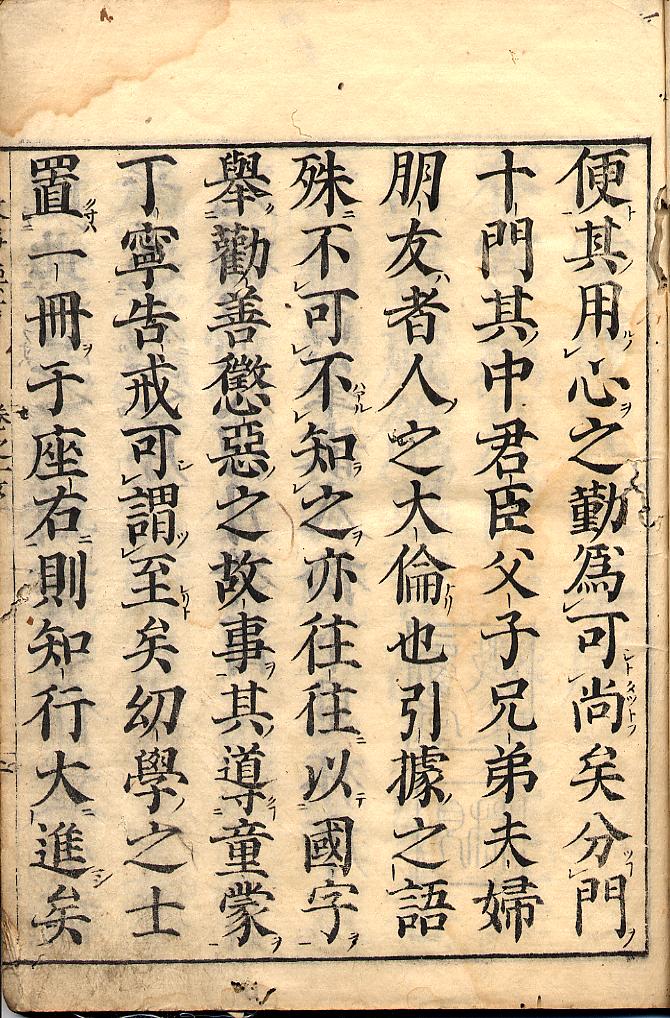 便其用心之勤爲可尚矣分門
十門其中君臣父子兄弟夫婦
朋友者人之大倫也引據之語
殊不可不知之亦往往以國字
舉勸善懲惡之故事其導童蒙
丁寧告戒可謂至矣幼學之士
置一冊于座右則知行大進矣